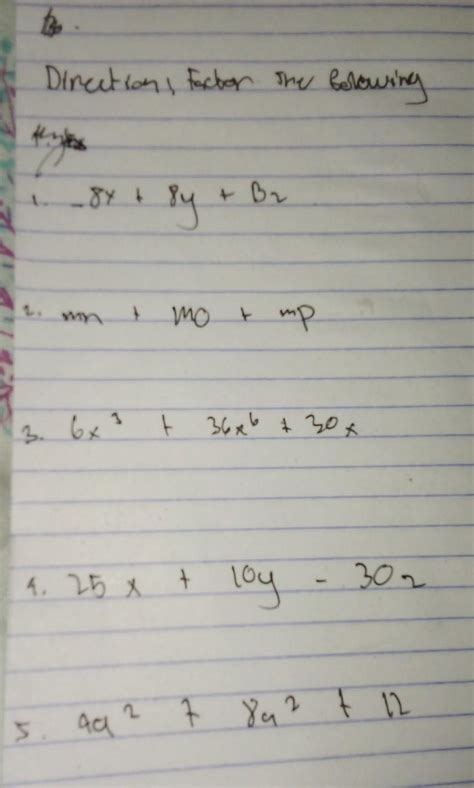 Direction, Factor The Following
1. -8x + 8y + 8z
2. mn + mo + mp
3. 6x³ + 36x⁶ + 30x
4. 25x + 10y - 30z
5. 4a² + 8a² + 12